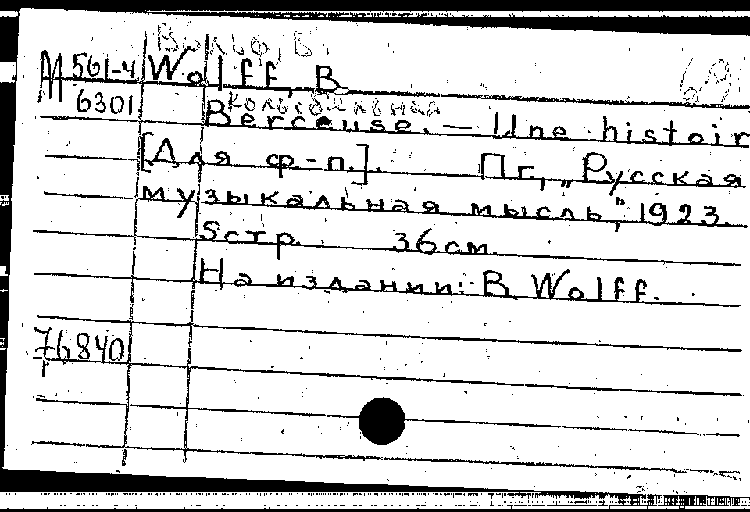 Вольф, Б.
М 561-4 Wolff, B.
6301 колыбельная
Berceuse. — Une histoir
[Для ф-п.]. Пг, „Русская
музыкальная мысль", 1923.
5 стр. 36 см.
На издании: B. Wolff.
76840